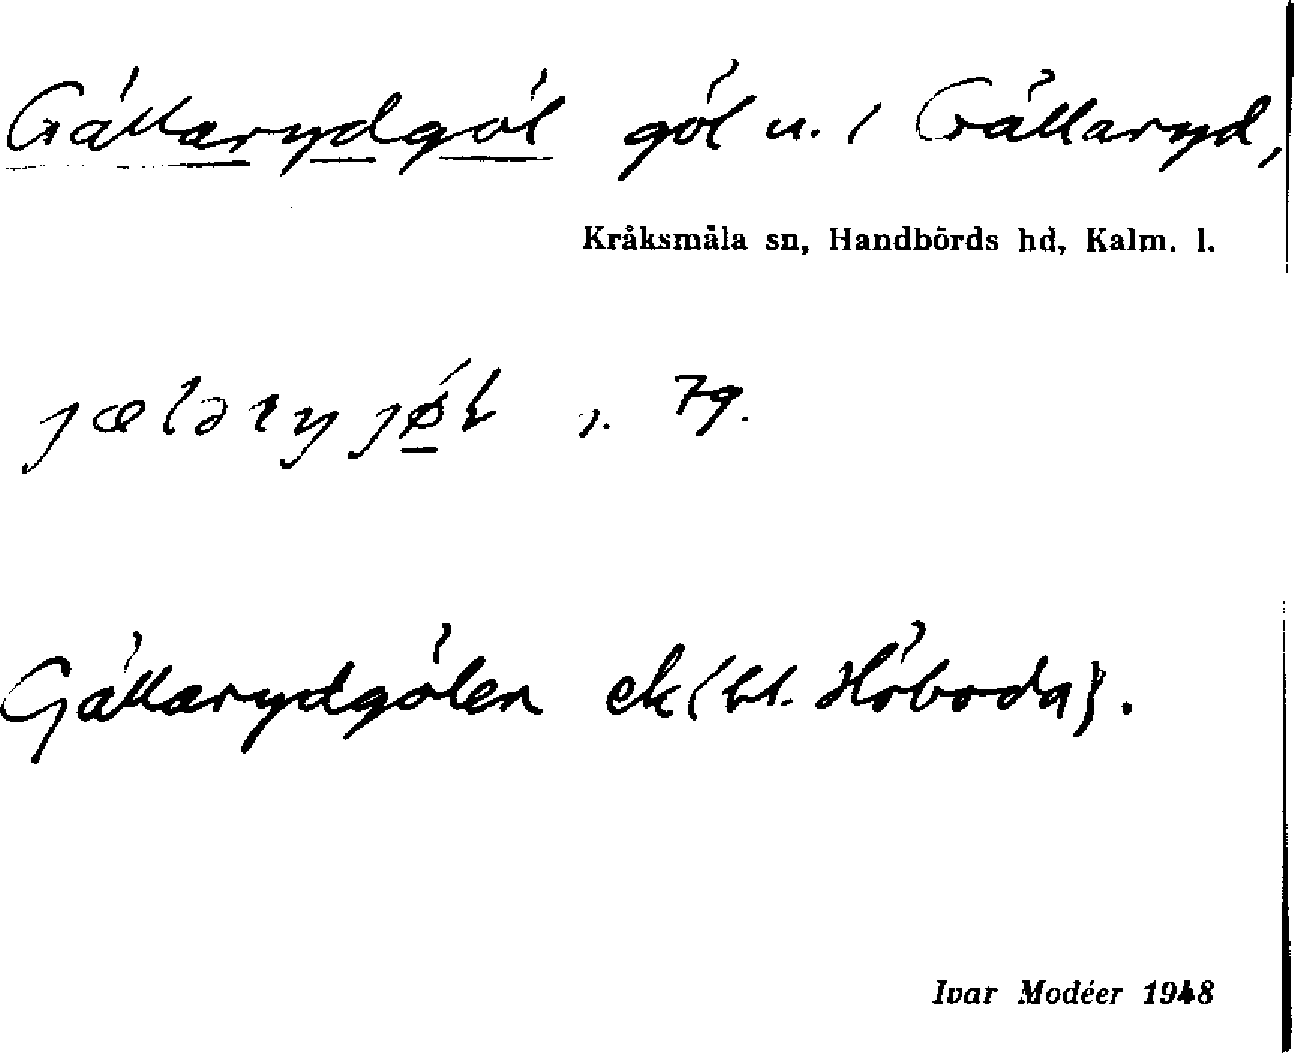 Gällarydgöl göl n. i Gällaryd,
Kråksmåla sn, Handbörds hd, Kalm. l.
79.
Gällarydgölen ek (bl. Höboda).
Ivar Modéer 1948